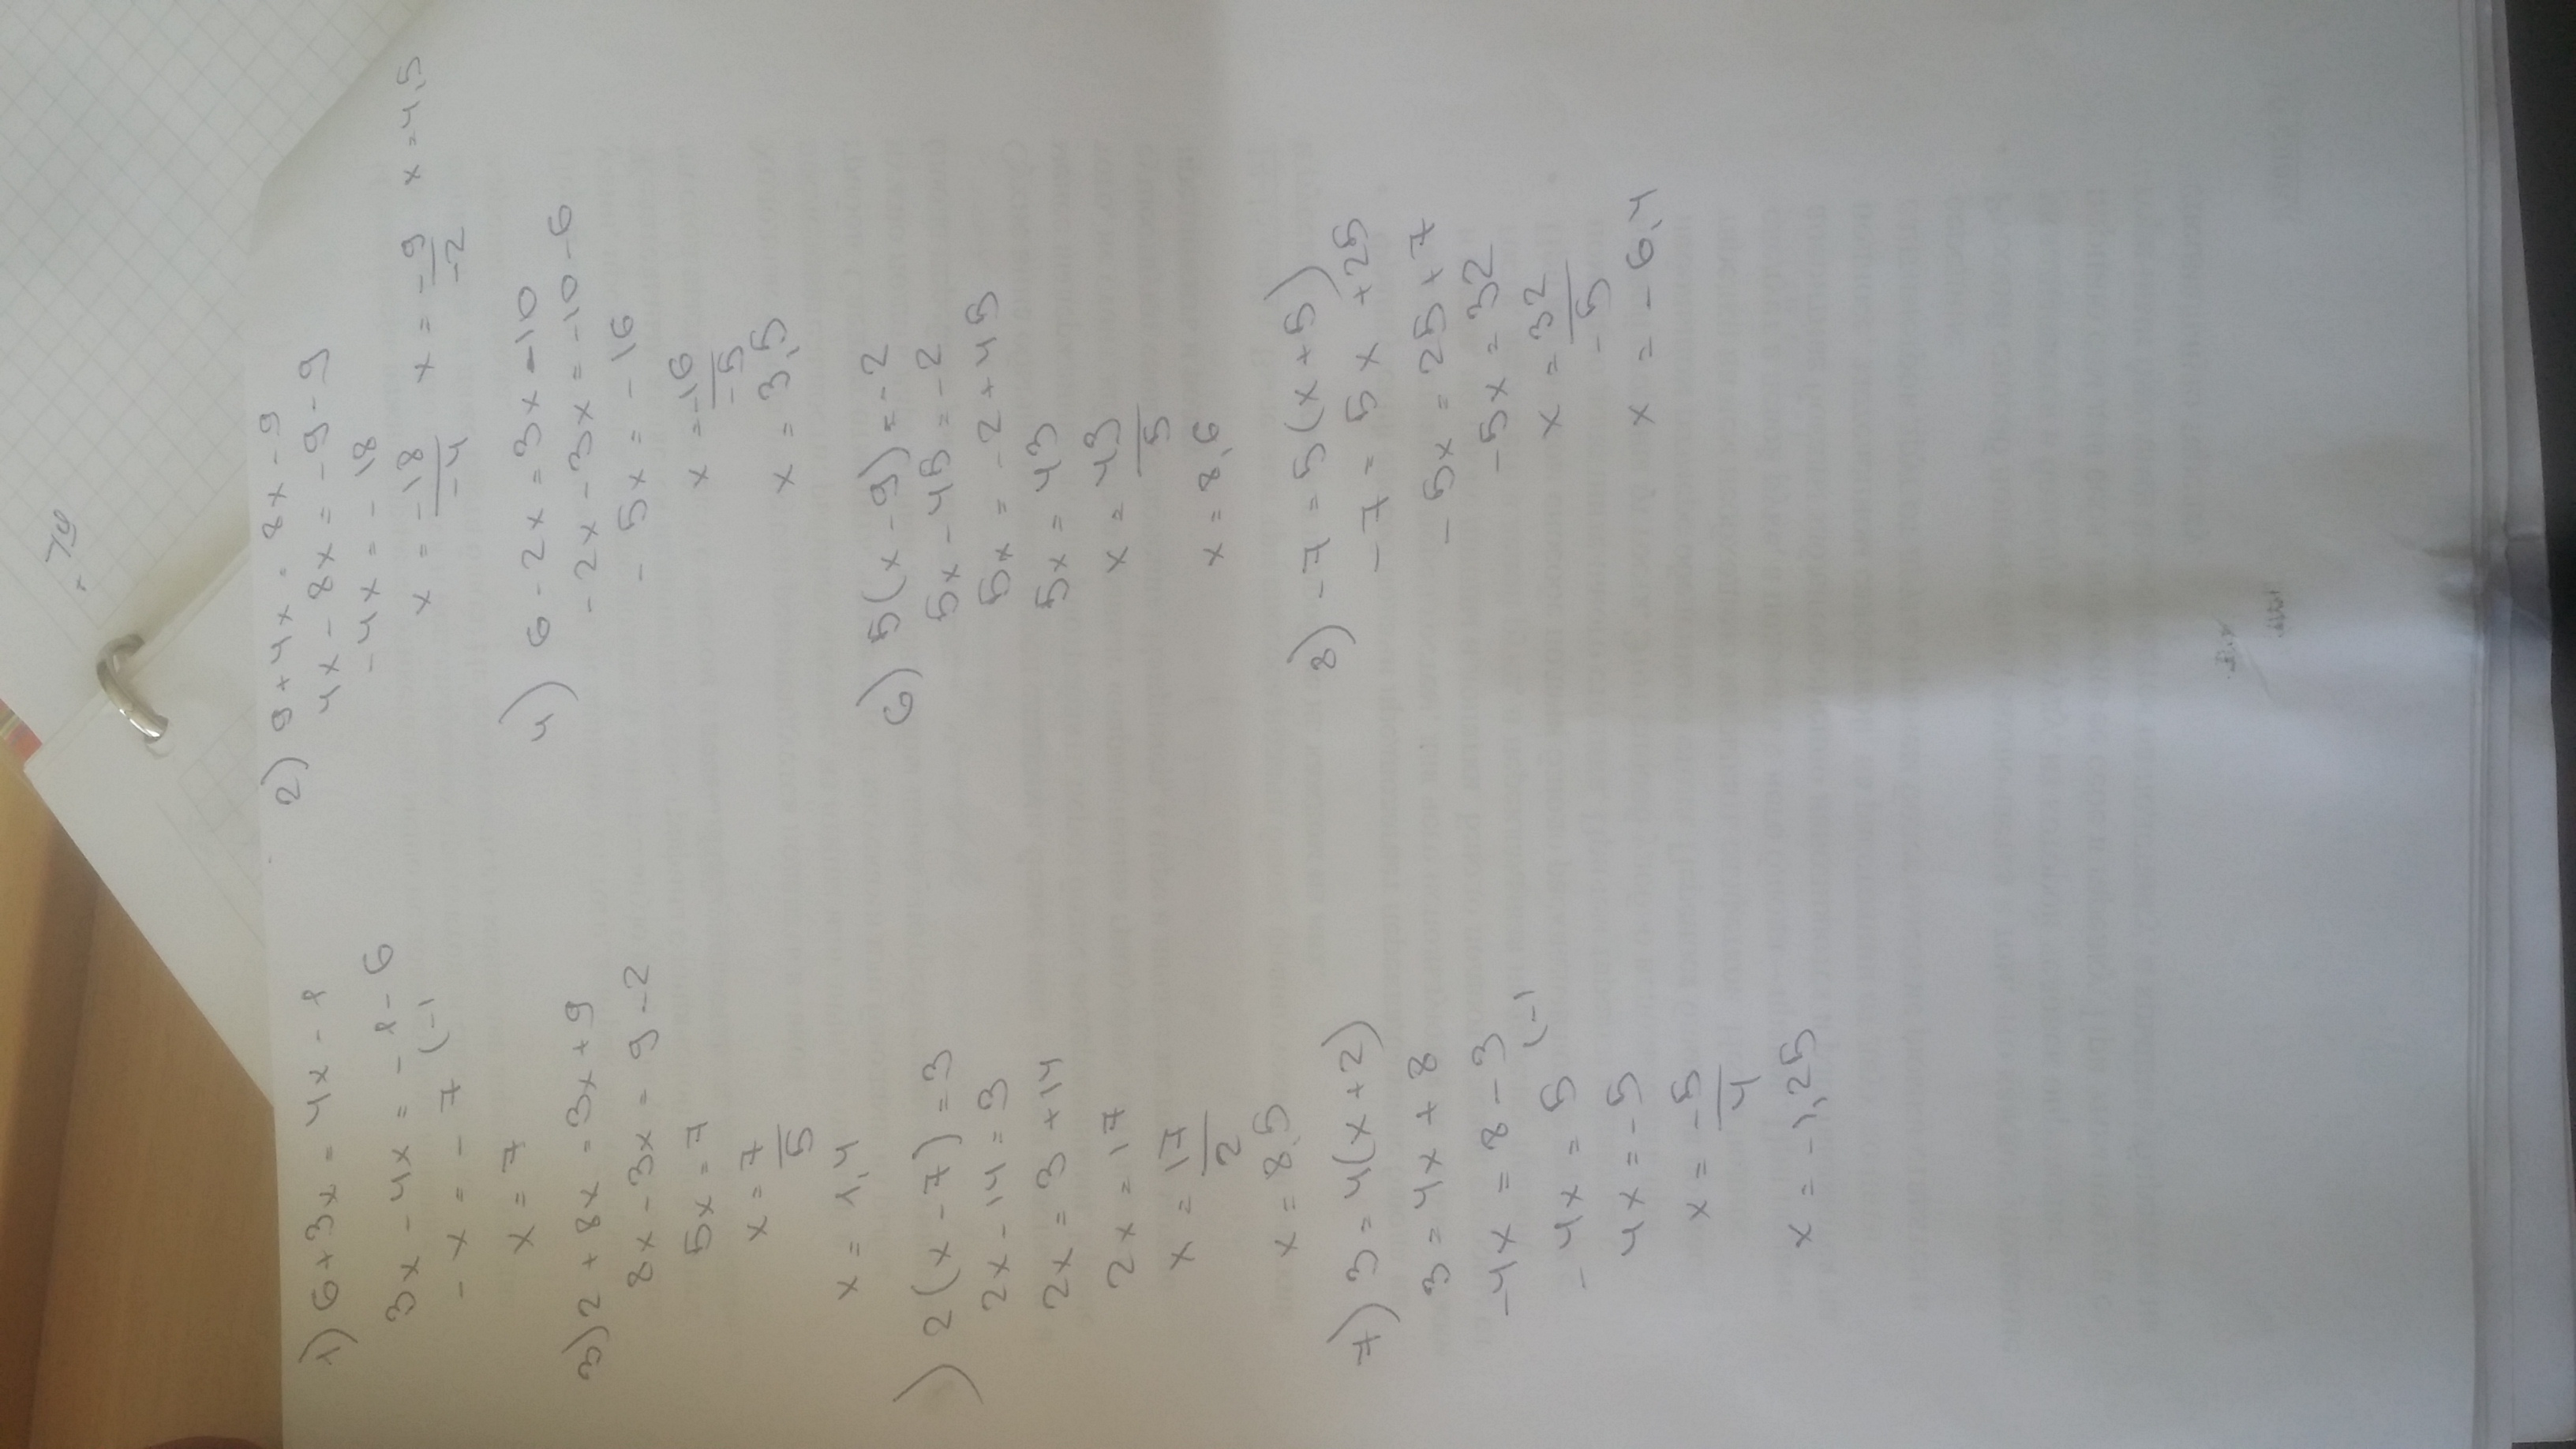 1) 6+3x = 4x - 1
3x - 4x = -1 - 6
-x = -7 (-1
x = 7
2) 9+4x = 8x - 9
4x - 8x = -9 - 9
-4x = -18
x = -18/-4 x = -9/-2 x = 4,5
3) 2 + 8x = 3x + 9
8x - 3x = 9 - 2
5x = 7
x = 7/5
x = 1,4
4) 6 - 2x = 3x - 10
-2x - 3x = -10 - 6
-5x = -16
x = -16/-5
x = 3,5
) 2(x - 7) = 3
2x - 14 = 3
2x = 3 + 14
2x = 17
x = 17/2
x = 8,5
6) 5(x - 9) = -2
5x - 45 = -2
5x = -2 + 45
5x = 43
x = 43/5
x = 8,6
7) 3 = 4(x + 2)
3 = 4x + 8
-4x = 8 - 3
-4x = 5 (-1
4x = -5
x = -5/4
x = -1,25
8) -7 = 5(x + 5)
-7 = 5x + 25
-5x = 25 + 7
-5x = 32
x = 32/-5
x = -6,4